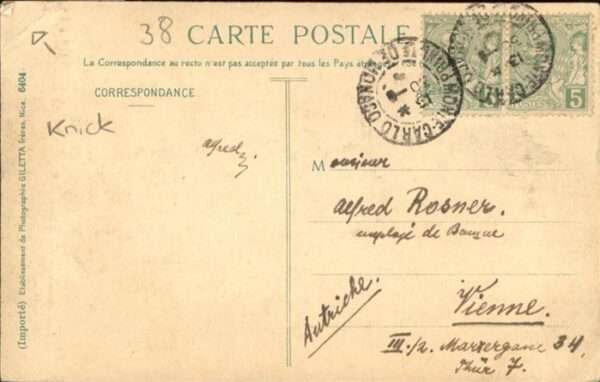 38
CARTE POSTALE
La Correspondance au recto n'est pas acceptée par tous les Pays
CORRESPONDANCE
Knick
alfred
Monsieur
Alfred Rosner.
employé de Banque
Autriche.
Vienne.
III./2. Marxergasse 34,
Thür 7.
MONTE-CARLO
POSTES 5
(Importé) Etablissement de Photographie GILETTA frères, Nice 6404